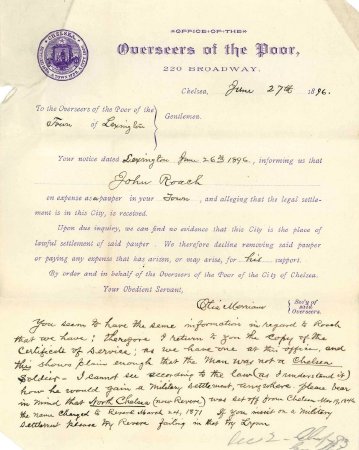 OFFICE OF THE
Overseers of the Poor,
220 BROADWAY.
Chelsea, June 27th 1896.
To the Overseers of the Poor of the
Town of Lexington
Gentlemen.
Your notice dated Lexington June 26th 1896, informing us that
John Roach
on expense as a pauper in your Town, and alleging that the legal settle-
ment is in this City, is received.
Upon due inquiry, we can find no evidence that this City is the place of
lawful settlement of said pauper. We therefore decline removing said pauper
or paying any expense that has arisen, or may arise, for his support.
By order and in behalf of the Overseers of the Poor of the City of Chelsea.
Your Obedient Servant,
Otis Merriam Sec'y of said Overseers.
You seem to have the same information in regard to Roach
that we have; therefore I return to you the Copy of the
Certificate of Service; as we have one at this office, and
this shows plain enough that the Man was not a Chelsea
Soldier - I cannot see according to the law (as I understand it)
how he would gain a Military settlement, anywhere please bear
in mind that North Chelsea (now Revere) was set off from Chelsea
the name Changed to Revere March 24, 1871 If you insist on a Military
settlement please try Revere failing in that try Lynn